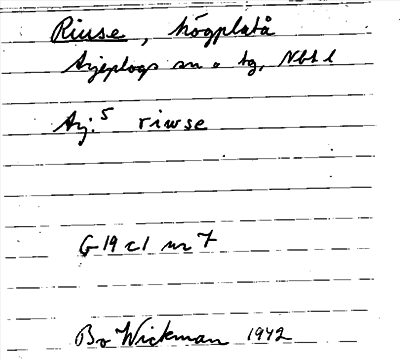 Riuse, högplatå
Arjeplogs sn o tg, Nbt l
Arj.5 riwse
G 19 c1 nr 7
Bo Wickman 1942